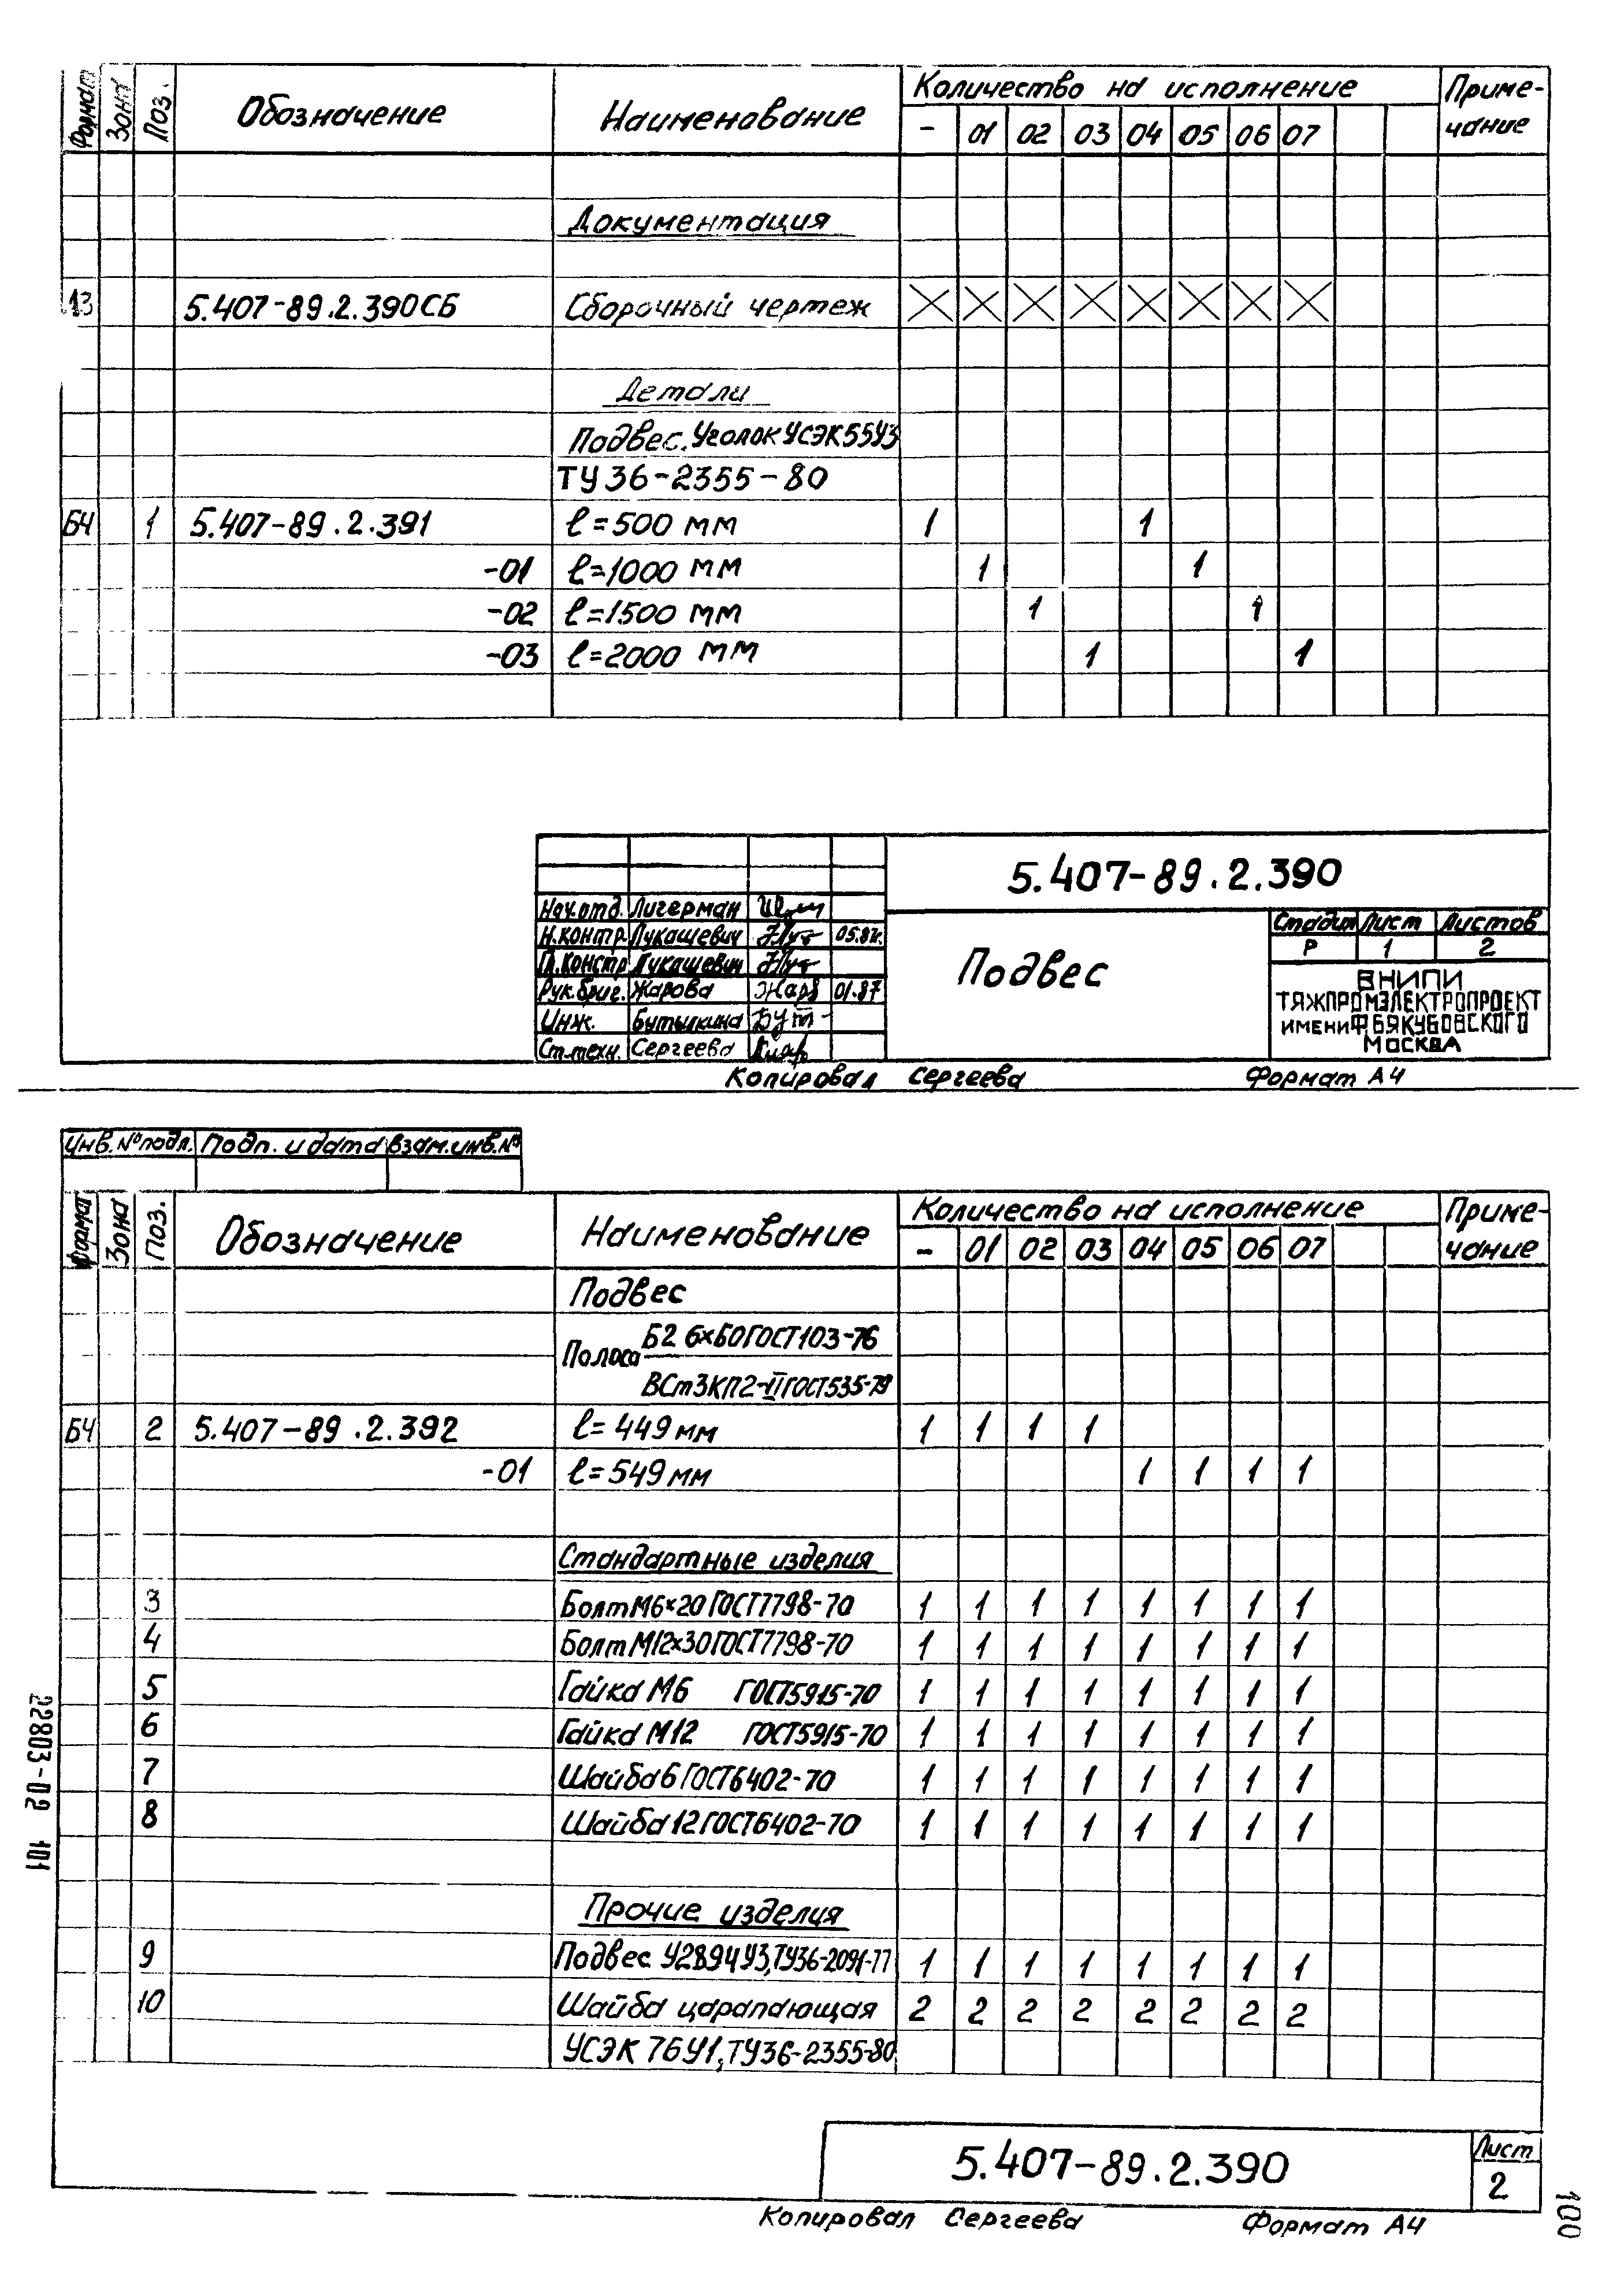 Формат Зона Поз. Обозначение Наименование Количество на исполнение Приме-
чание
- 01 02 03 04 05 06 07
Документация
А3 5.407-89.2.390СБ Сборочный чертеж
Детали
Подвес. Уголок УСЭК55У3
ТУ36-2355-80
БЧ 1 5.407-89.2.391 ℓ=500 мм 1 1
-01 ℓ=1000 мм 1 1
-02 ℓ=1500 мм 1 1
-03 ℓ=2000 мм 1 1
5.407-89.2.390
Нач.отд. Лигерман
Н.контр. Лукашевич 05.87г.
Гл.констр Лукашевич
Рук.бриг. Жарова 01.87
Инж. Бутылкина
Ст.техн. Сергеева
Подвес
Стадия Лист Листов
Р 1 2
ВНИПИ
ТЯЖПРОМЭЛЕКТРОПРОЕКТ
ИМЕНИ Ф.Б.ЯКУБОВСКОГО
МОСКВА
Копировал Сергеева Формат А4
Инв.№подл. Подп. и дата Взам.инв.№
Формат Зона Поз. Обозначение Наименование Количество на исполнение Приме-
чание
- 01 02 03 04 05 06 07
Подвес
Полоса Б2 6х60ГОСТ103-76
ВСт3КП2-IIГОСТ535-79
БЧ 2 5.407-89.2.392 ℓ=449мм 1 1 1 1
-01 ℓ=549мм 1 1 1 1
Стандартные изделия
3 Болт М6х20 ГОСТ7798-70 1 1 1 1 1 1 1 1
4 Болт М12х30ГОСТ7798-70 1 1 1 1 1 1 1 1
5 Гайка М6 ГОСТ5915-70 1 1 1 1 1 1 1 1
6 Гайка М12 ГОСТ5915-70 1 1 1 1 1 1 1 1
7 Шайба 6 ГОСТ6402-70 1 1 1 1 1 1 1 1
8 Шайба 12 ГОСТ6402-70 1 1 1 1 1 1 1 1
Прочие изделия
9 Подвес У2894У3,ТУ36-2091-77 1 1 1 1 1 1 1 1
10 Шайба царапающая 2 2 2 2 2 2 2 2
УСЭК 76У1,ТУ36-2355-80
5.407-89.2.390
Лист
2
Копировал Сергеева Формат А4
22803-02 101
100